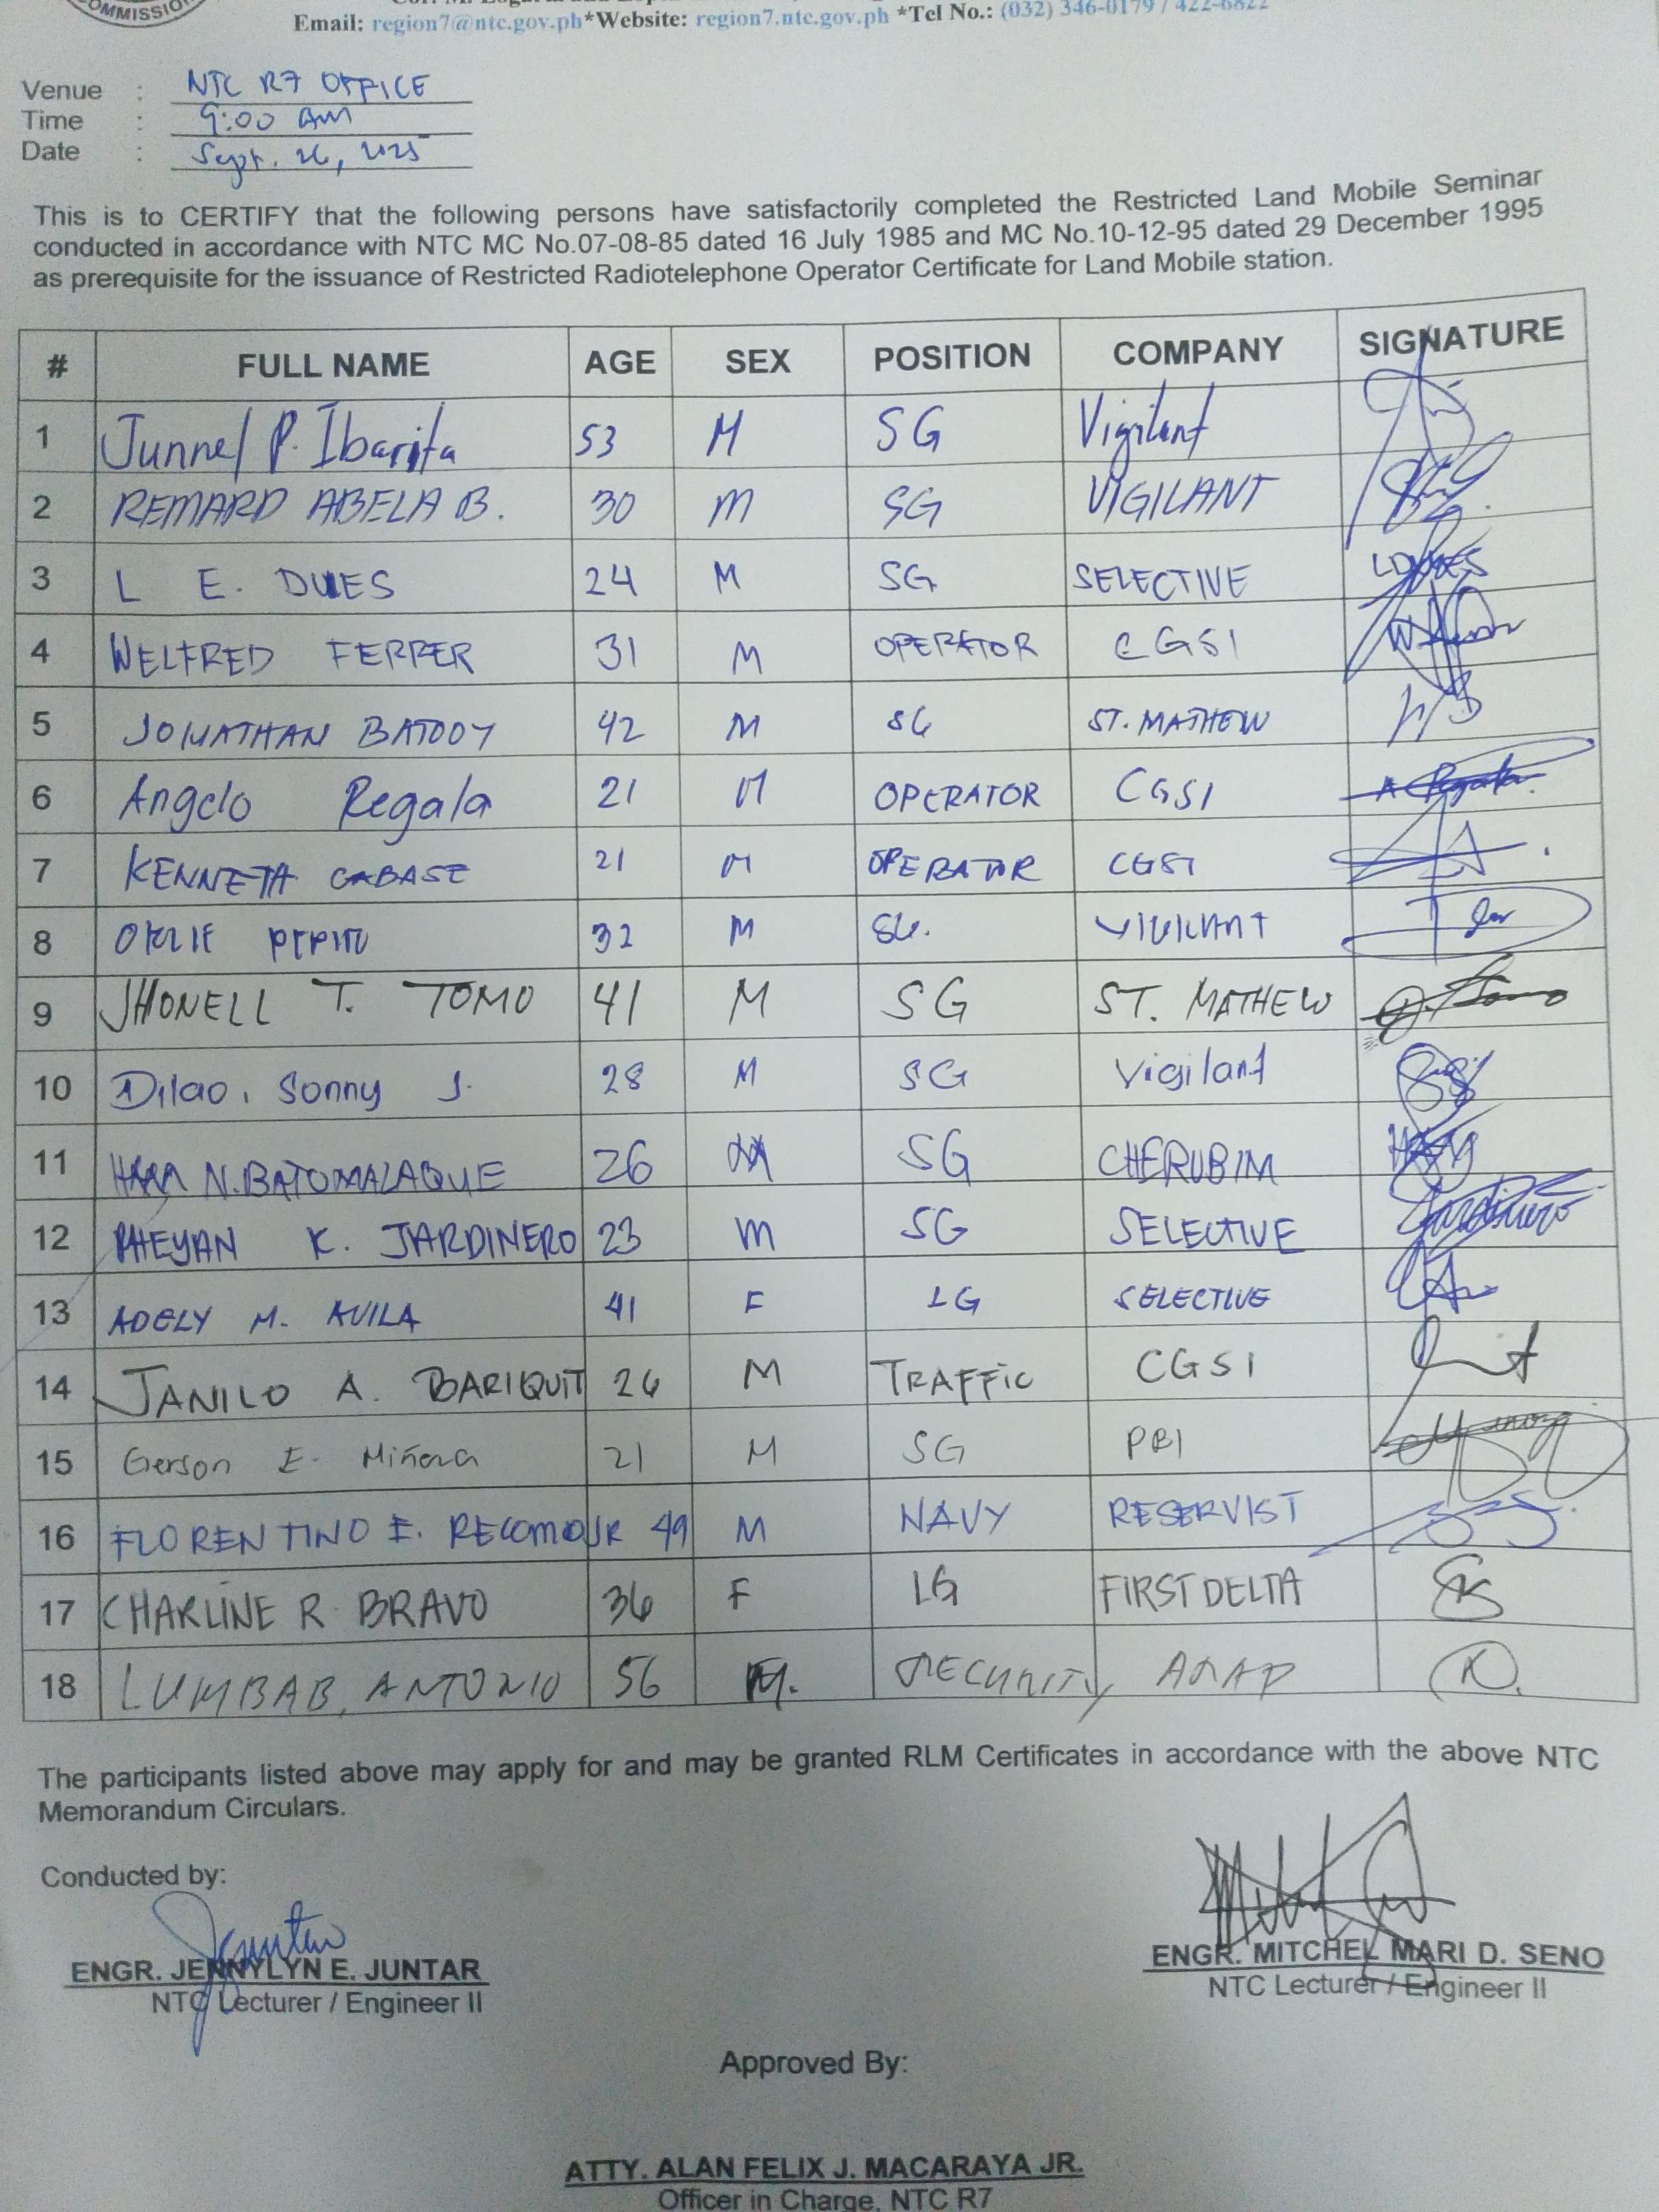 COMMISSION
Email: region7@ntc.gov.ph*Website: region7.ntc.gov.ph *Tel No.: (032) 346-0179 / 422-6822
Venue : NTC R7 OFFICE
Time : 9:00 AM
Date : Sept. 26, 2025
This is to CERTIFY that the following persons have satisfactorily completed the Restricted Land Mobile Seminar
conducted in accordance with NTC MC No.07-08-85 dated 16 July 1985 and MC No.10-12-95 dated 29 December 1995
as prerequisite for the issuance of Restricted Radiotelephone Operator Certificate for Land Mobile station.
# FULL NAME AGE SEX POSITION COMPANY SIGNATURE
1 Junnel P. Ibarita 53 M SG Vigilant
2 REMARD ABELA B. 30 M SG VIGILANT
3 L E. DUES 24 M SG SELECTIVE
4 WELFRED FERRER 31 M OPERATOR CGSI
5 JONATHAN BATOOY 42 M SG ST. MATHEW
6 Angelo Regala 21 M OPERATOR CGSI
7 KENNETH CABASE 21 M OPERATOR CGSI
8 PEPITO 32 M SG. VIGILANT
9 JHONELL T. TOMO 41 M SG ST. MATHEW
10 Dilao, Sonny J. 28 M SG Vigilant
11 N. BATOMALAQUE 26 M SG CHERUBIM
12 RHEYAN K. JARDINERO 23 M SG SELECTIVE
13 ADELY M. AVILA 41 F LG SELECTIVE
14 JANILO A. BARIQUIT 26 M TRAFFIC CGSI
15 Gerson E. Miñoza 21 M SG PBI
16 FLORENTINO E. RECOMO JR 49 M NAVY RESERVIST
17 CHARLINE R. BRAVO 36 F LG FIRST DELTA
18 LUMBAB, ANTONIO 56 M. SECURITY
The participants listed above may apply for and may be granted RLM Certificates in accordance with the above NTC
Memorandum Circulars.
Conducted by:
ENGR. JENNYLYN E. JUNTAR ENGR. MITCHEL MARI D. SENO
NTC Lecturer / Engineer II NTC Lecturer / Engineer II
Approved By:
ATTY. ALAN FELIX J. MACARAYA JR.
Officer in Charge, NTC R7